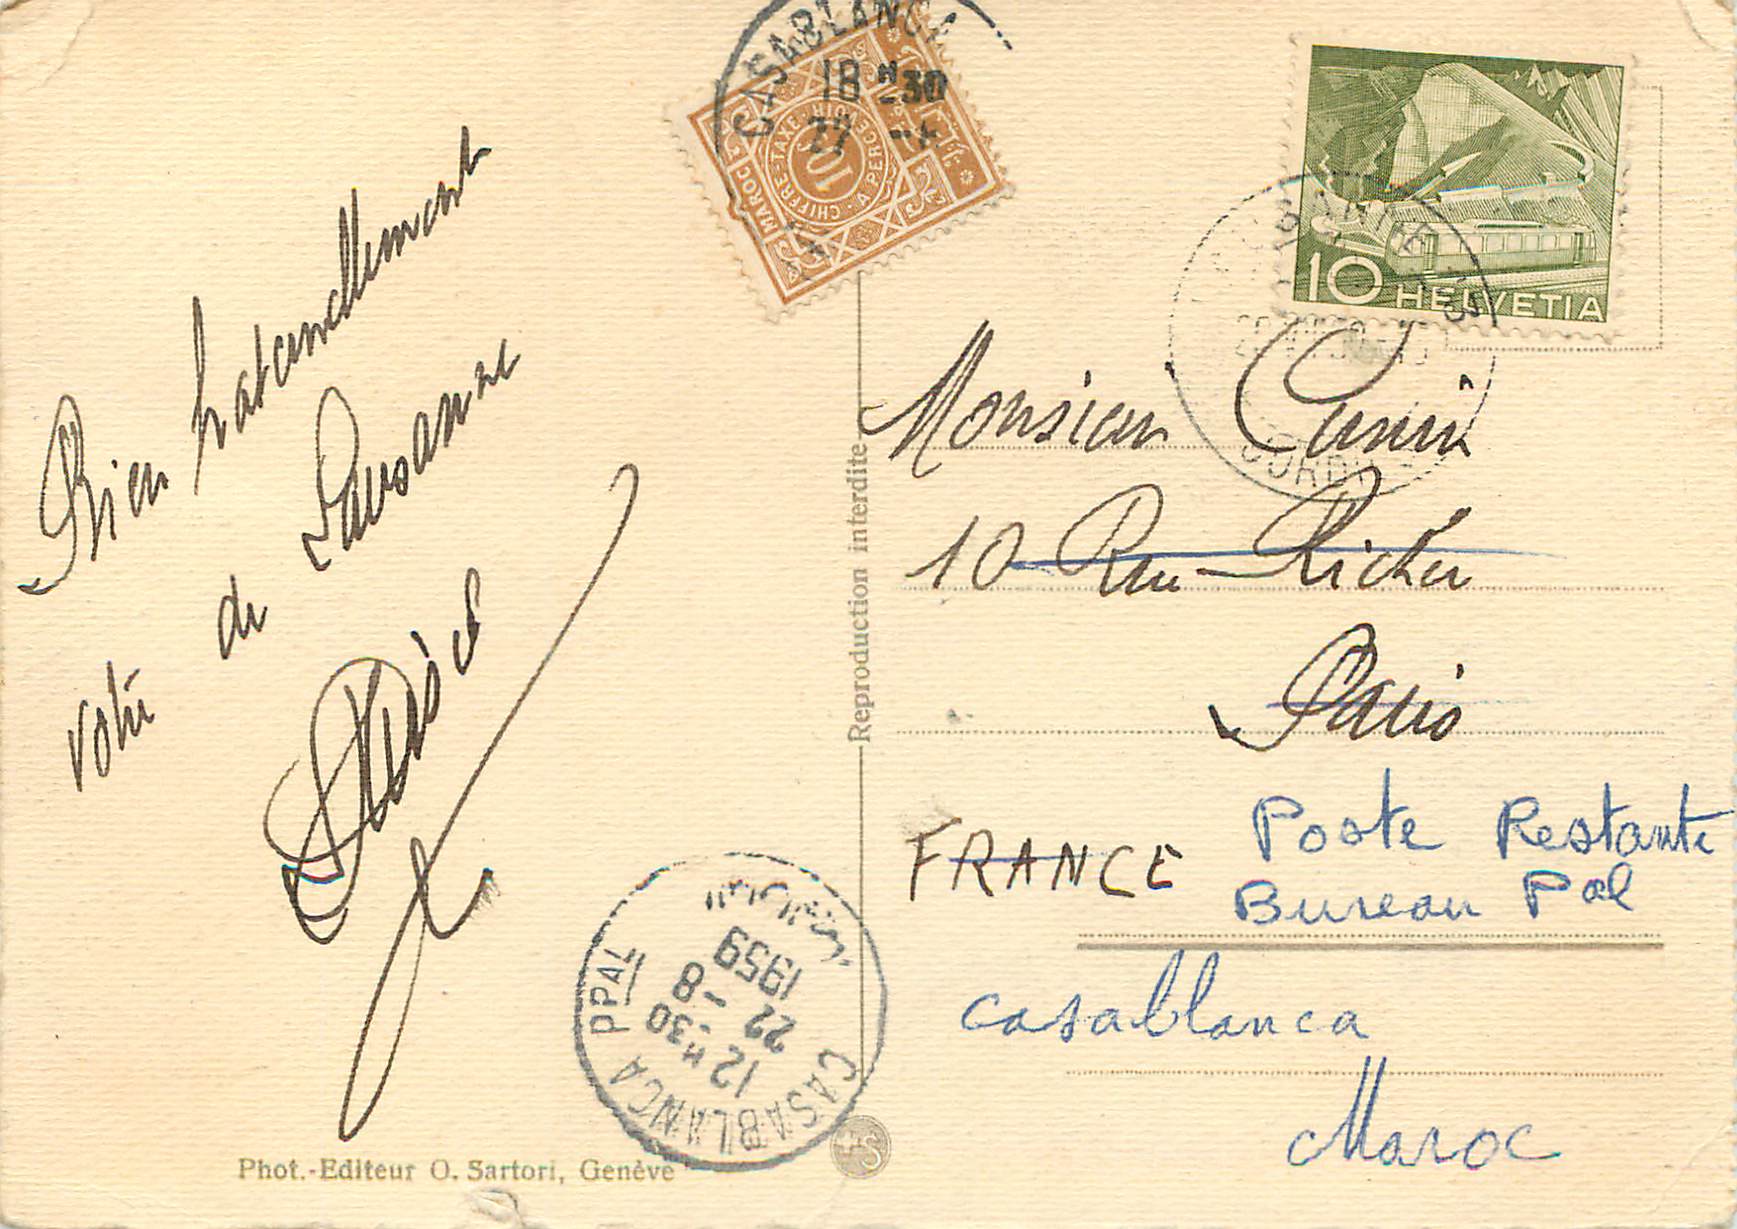 Bien
votre de Lausanne
CASABLANCA
18 H 30
MAROC
CHIFFRE-TAXE
A PERCEVOIR
10
10 HELVETIA
Monsieur
10 Rue Richer
Paris
FRANCE
Poste Restante
Bureau Pal
Casablanca
Maroc
Reproduction interdite
CASABLANCA PPAL
12 H 30
22 -8
1959
Phot.-Editeur O. Sartori, Genève